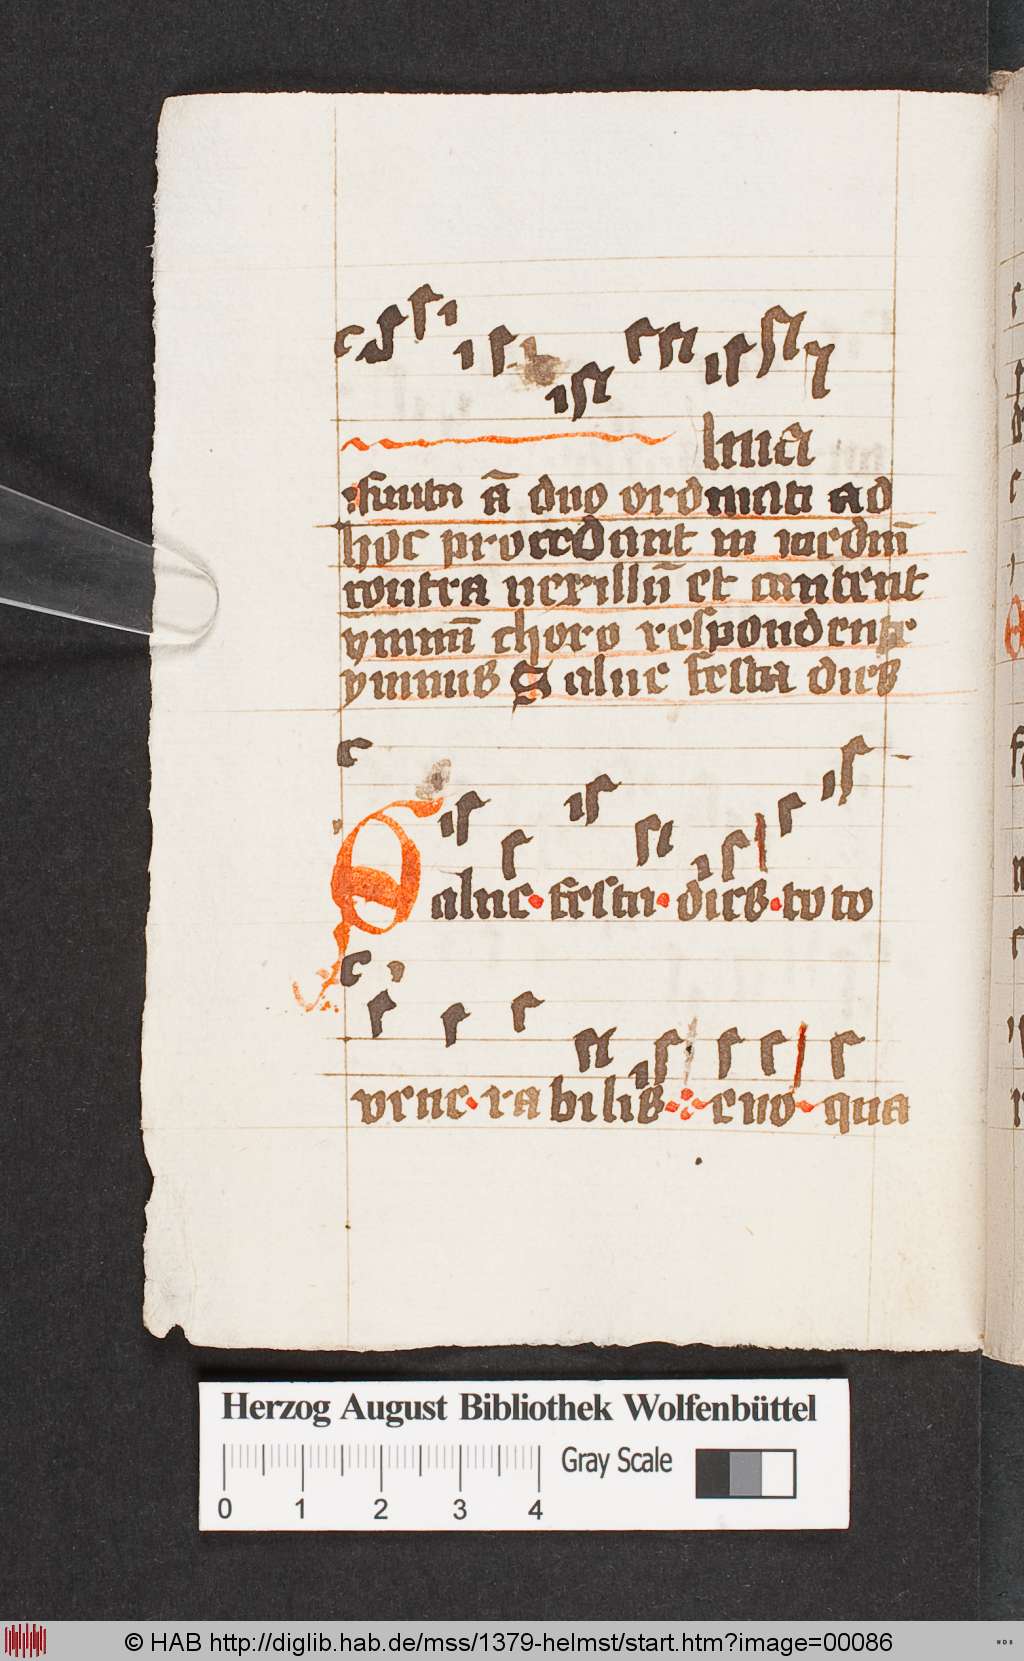 luia
finita ā duo ordinati ad
hoc procedant in mediū
contra uexillū et cantent
ymnū choro respondente
ymnus Salue festa dies
Salue festa dies toto
uene rabilis euo qua
Herzog August Bibliothek Wolfenbüttel
Gray Scale
0 1 2 3 4
© HAB http://diglib.hab.de/mss/1379-helmst/start.htm?image=00086